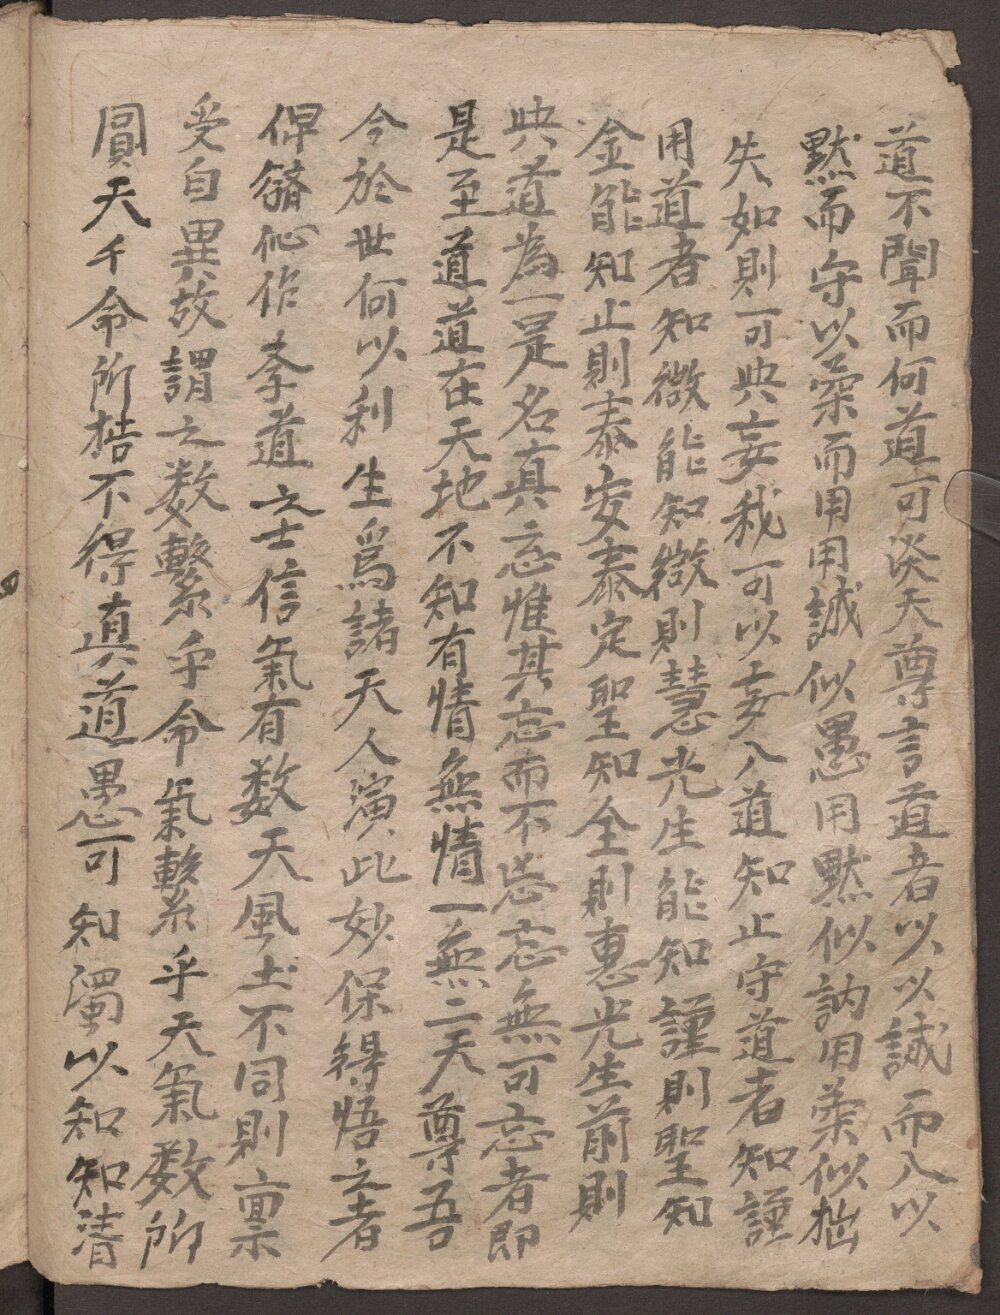 道不聞而何道可淡天尊言道者以以誠而入以
黙而守以柔而用用誠似愚用黙似訥用柔似拙
失如則可典妄我可以妄入道知止守道者知謹
用道者知微能知微則慧光生能知謹則聖知
金能知止則泰安泰定聖知全則惠光生前則
典道為一是名真忘惟其忘而不忘忘無可忘者即
是至道道在天地不知有情無情一無二天尊吾
今於世何以利生爲諸天人演此妙保得悟之者
俾躋仙作李道之士信氣有数天風土不同則禀
受自異故謂之数繫乎命氣繫乎天氣数所
圓天千命所梏不得真道愚可知濁以知知清